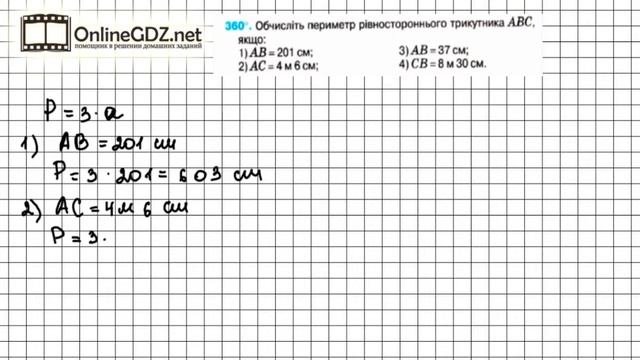 OnlineGDZ.net
помощник в решении домашних заданий
360°. Обчисліть периметр рівностороннього трикутника ABC,
якщо:
1) AB = 201 см;
2) AC = 4 м 6 см;
3) AB = 37 см;
4) CB = 8 м 30 см.
P = 3 · a
1) AB = 201 см
P = 3 · 201 = 603 см
2) AC = 4м 6 см
P = 3 ·